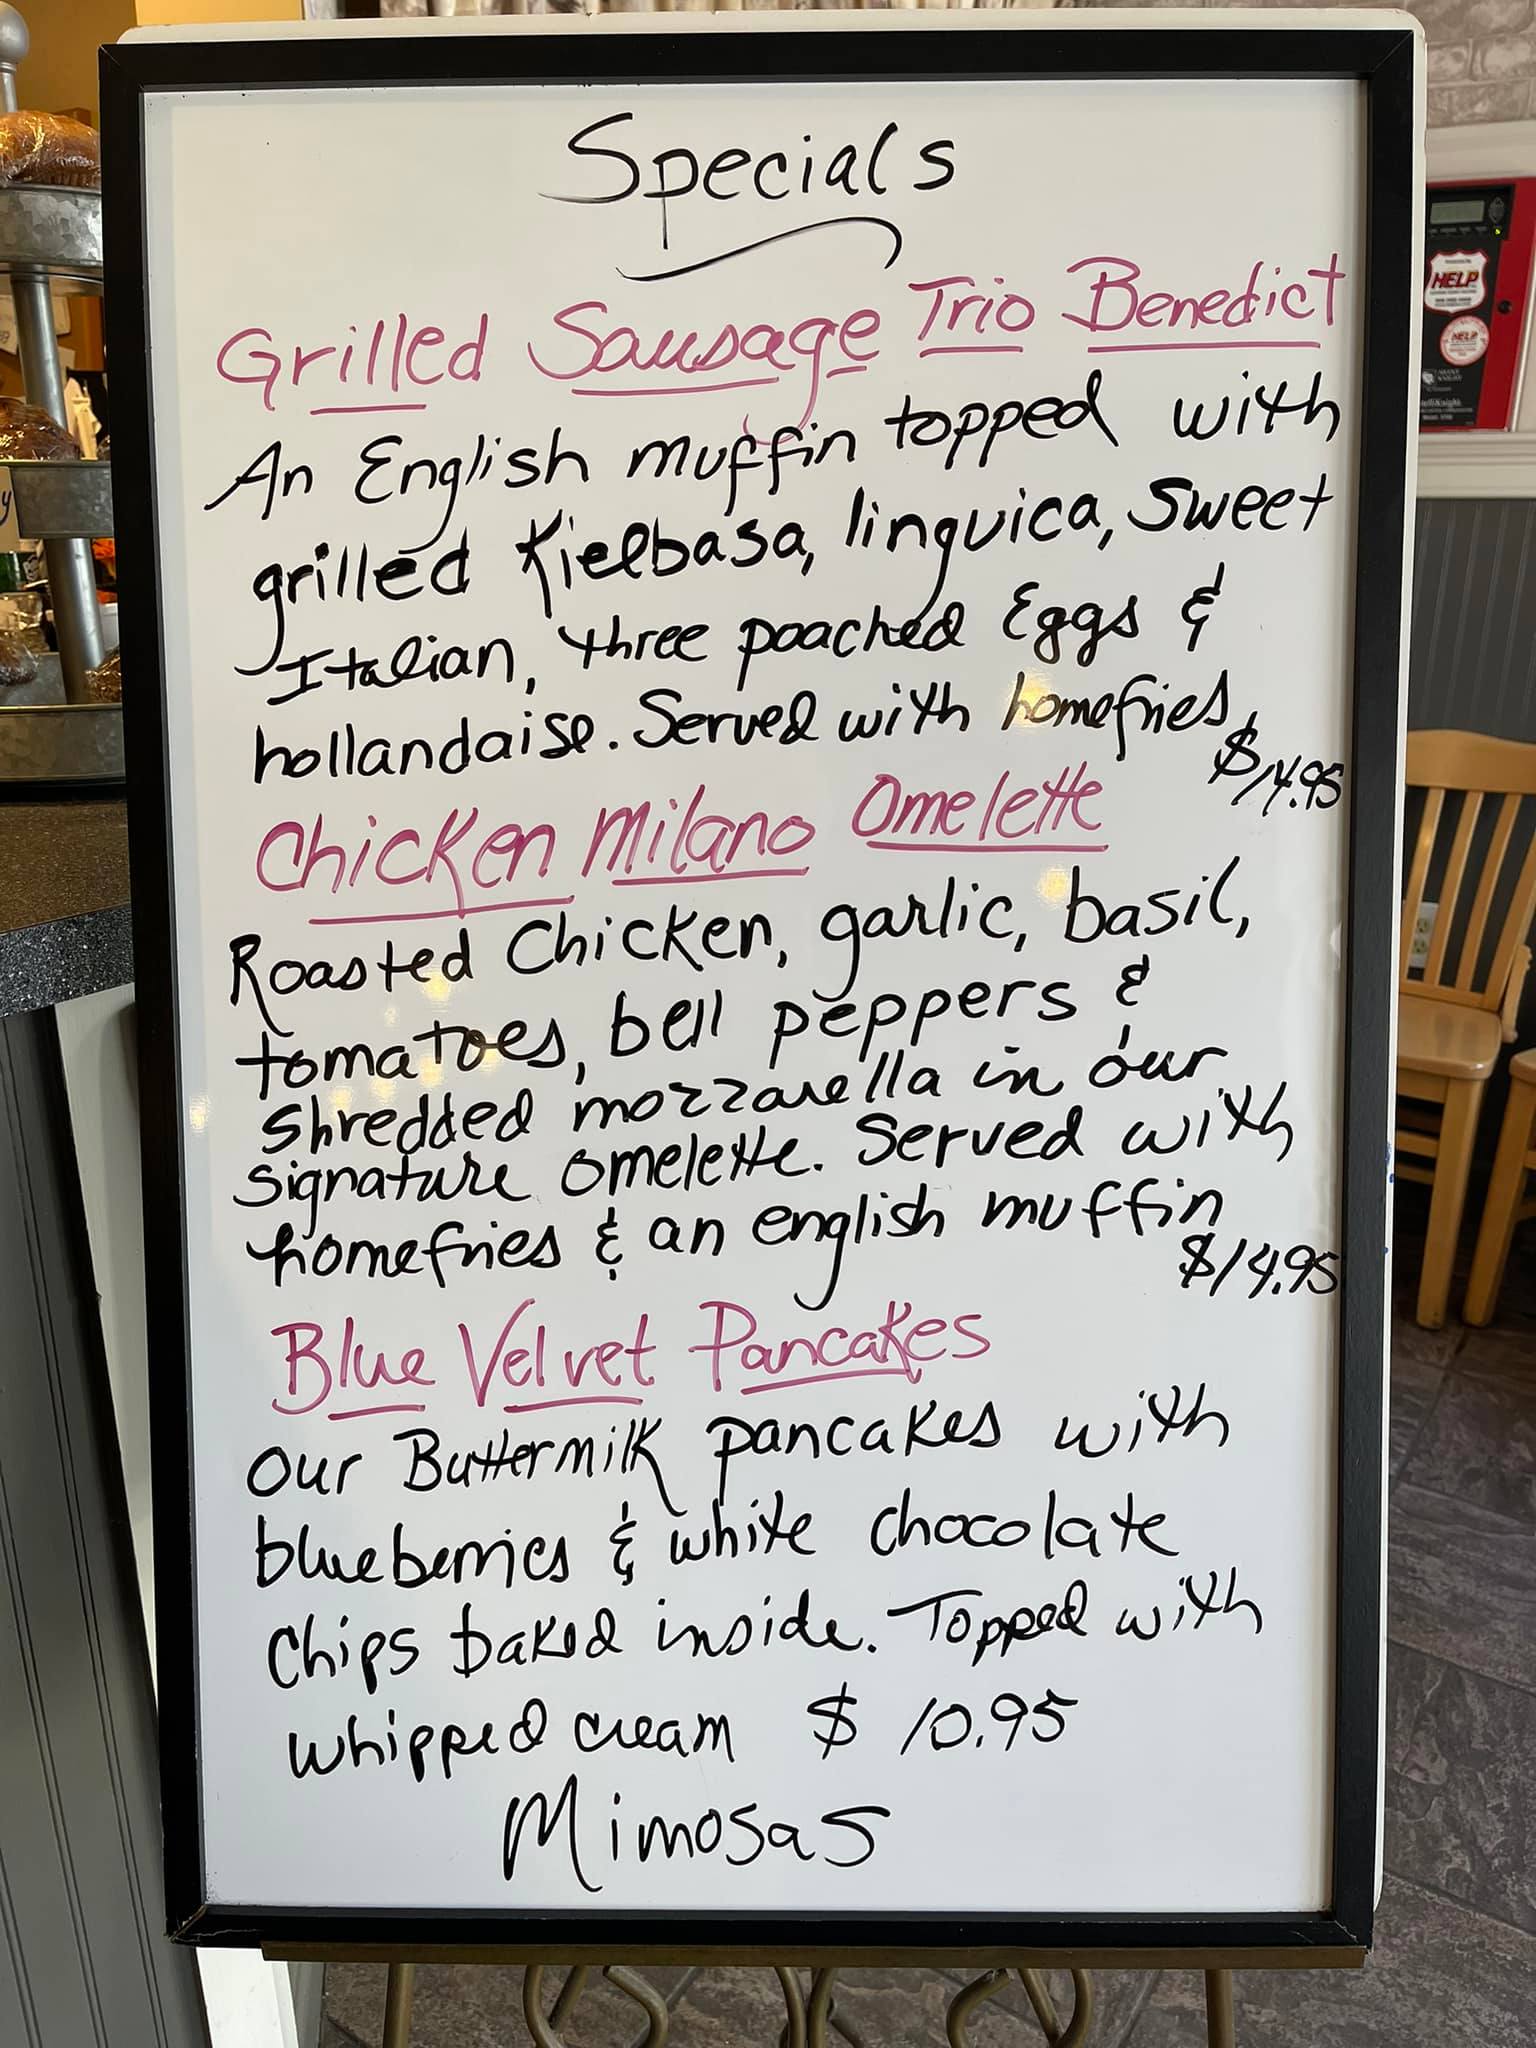 Specials
Grilled Sausage Trio Benedict
An English muffin topped with
grilled Kielbasa, linguica, Sweet
Italian, three poached Eggs &
hollandaise. Served with homefries
$14.95
Chicken Milano Omelette
Roasted Chicken, garlic, basil,
tomatoes, bell peppers &
Shredded mozzarella in our
signature omelette. Served with
homefries & an english muffin
$14.95
Blue Velvet Pancakes
Our Buttermilk pancakes with
blueberries & white chocolate
Chips baked inside. Topped with
whipped cream $ 10.95
Mimosas
HELP
HELP